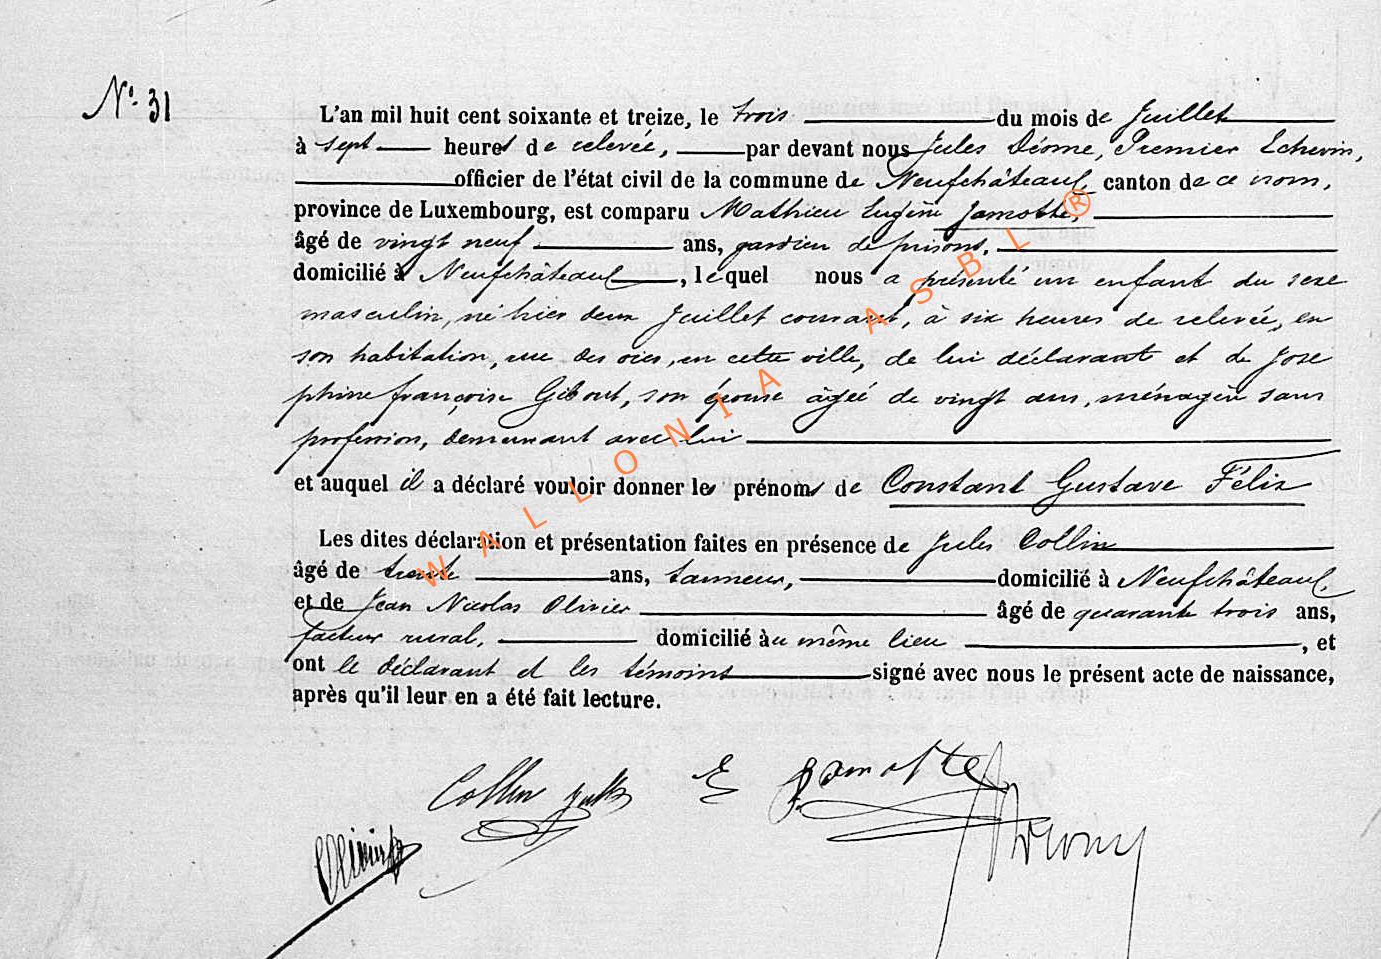 N° 31
L'an mil huit cent soixante et treize, le trois du mois de Juillet
à sept heures de relevée, par devant nous Jules Déome, Premier Echevin,
officier de l'état civil de la commune de Neufchâteau, canton de ce nom,
province de Luxembourg, est comparu Mathieu Eugène Jamotte,
âgé de vingt neuf ans, gardien de prisons,
domicilié à Neufchâteau, lequel nous a présenté un enfant du sexe
masculin, né hier deux Juillet courant, à six heures de relevée, en
son habitation, rue des oies, en cette ville, de lui déclarant et de José
phine françoise Gibout, son épouse âgée de vingt ans, ménagère sans
profession, demeurant avec lui
et auquel il a déclaré vouloir donner les prénoms de Constant Gustave Félix
Les dites déclaration et présentation faites en présence de Jules Collin
âgé de trente ans, tanneur, domicilié à Neufchâteau,
et de Jean Nicolas Olivier âgé de quarante trois ans,
facteur rural, domicilié au même lieu, et
ont le déclarant et les témoins signé avec nous le présent acte de naissance,
après qu'il leur en a été fait lecture.
Collin Jules E Jamotte
Olivier
WALLONIA ASBL ®